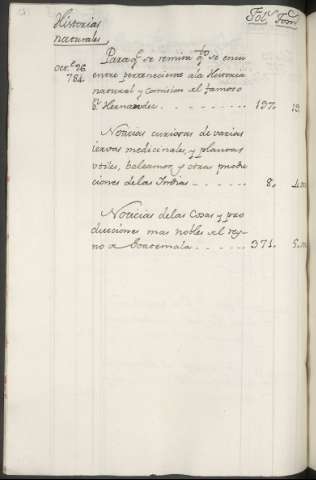 Fol.^s Tom.^s
Historias
naturales
Oct.^e 26 Para q.^e se remita q.^to se encu
784 entre perteneciente a la Historia
natural y comision del famoso
D.^r Hernandez . . . . . . . 197. 13.
Noticias curiosas de varias
iervas medicinales, y plantas
utiles, balsamos y otras produc
ciones de las Indias - - - - - 8. 4.
Noticias de las Cosas y pro
ducciones mas nobles del rey-
no de Goatemala - - - - - - 371. 5.